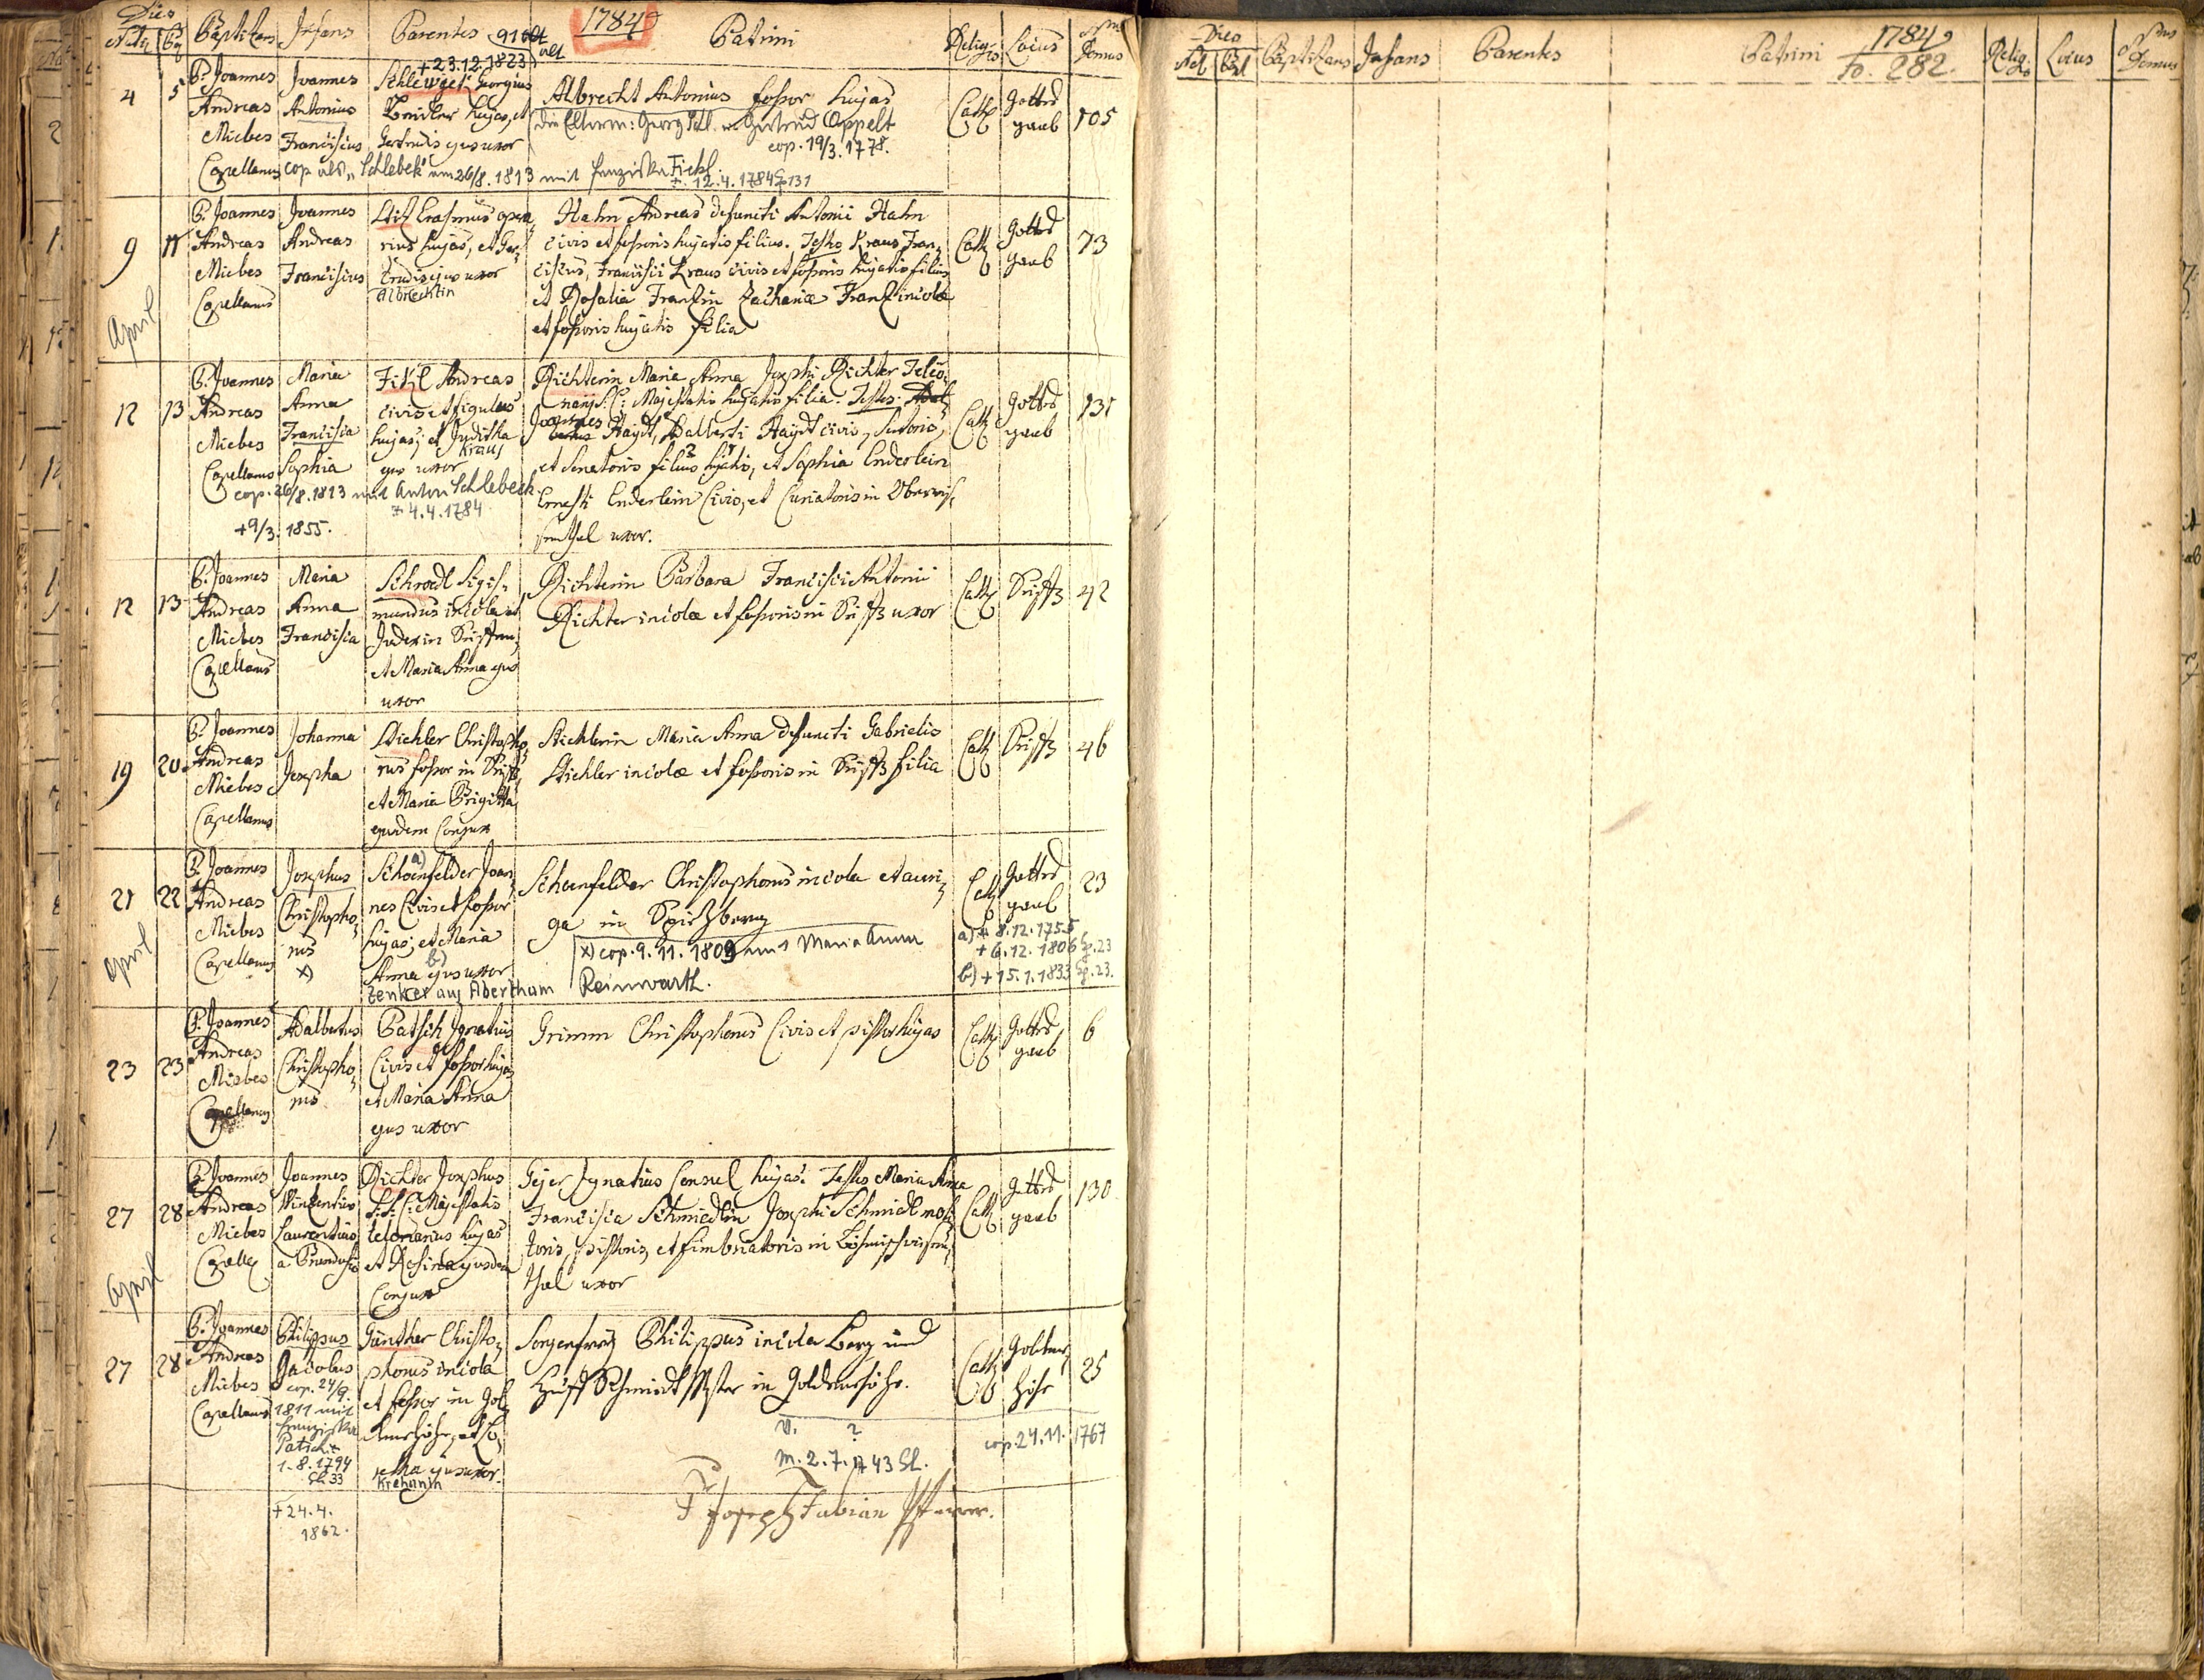 Dies
Nat. Bap. Baptizans Infans Parentes 1784 Patrini Relig. Locus Nrus Domus
+ 23.12.1823
4 5 P. Joannes Andreas Miebes Capellanus
Joannes Antonius Franciscus
Georgius hujas, et Gertrudis ejus uxor
Albrecht Antonius fossor hujas
die Eltern: Georg Schl. u. Gertrud Oppelt
cop. 19/3. 1778.
Cath Gottsgaab 105
cop als "Schlebek" am 26/8. 1813 mit Franziska Fickl
* 12.4.1784 G 131
April
9 11 P. Joannes Andreas Miebes Capellanus
Joannes Andreas Franciscus
Erasmus operarius hujas, et Gertrudis ejus uxor
Albrechtin
Hahn Andreas defuncti Antonii Hahn
civis et fossoris hujatis filius. Testes Kraus Fran=
ciscus, Francisci Kraus civis et fossoris hujatis filius
et Rosalia Franzin Zachariæ Franz incolæ
et fossoris hujatis filia
Cath Gottsgaab 73
12 13 P. Joannes Andreas Miebes Capellanus
Maria Anna Francisca Sophia
Fikl Andreas civis et figulus hujas; et Juditha ejus uxor
Kraus
Richterin Maria Anna Josephi Richter Telo=
narij S. C. Majestatis hujatis filia. Testes
Joannes Haydt, Adalberti Haydt civis, Sutoris,
et Senatoris filius hujatis, et Sophia Enderlein
Ernesti Enderlein Civis, et Curiatoris in Oberwie=
senthal uxor.
Cath Gottsgaab 131
cop. 26/8. 1813 mit Anton Schlebeck
* 4.4.1784
+ 9/3. 1855.
12 13 P. Joannes Andreas Miebes Capellanus
Maria Anna Francisca
Schrodl Sigis=
mundus incola et
Judex in
et Maria Anna ejus
uxor
Richterin Barbara Francisci Antonii
Richter incolæ et fossoris in uxor
Cath 42
19 20 P. Joannes Andreas Miebes Capellanus
Johanna Josepha
Stichler Christopho=
rus fossor in
et Maria Brigitta
ejusdem Conjux
Stichlerin Maria Anna defuncti Gabrielis
Stichler incolæ et fossoris in filia
Cath 46
April
21 22 P. Joannes Andreas Miebes Capellanus
Josephus Christophorus x)
a) Schoenfelder Joan=
nes Civis et fossor
hujas; et Maria
b) Anna ejus uxor
Zenker aus Abertham
Schoenfelder Christophorus incola et auri=
ga in Spitzberg
x) cop. 9.11.1809 mit Maria Anna
Reinwarth.
Cath Gottsgaab 23
a) * 8.12.1755
+ 6.12.1806 G.23
b) + 15.1.1833 G.23.
23 23 P. Joannes Andreas Miebes Capellanus
Adalbertus Christophorus
Patsch Ignatius
Civis et fossor hujas
et Maria Anna
ejus uxor
Grimm Christophorus Civis et pistor hujas
Cath Gottsgaab 6
April
27 28 P. Joannes Andreas Miebes Capell
Joannes Vinzentius Laurentius a Brundusio
Richter Josephus
S. C. Majestatis
telonarius hujas
et Rosina ejusdem
Conjux
Gejer Ignatius Consul hujas. Testes Maria Anna
Francisca Schmiedlin Josephi Schmiedl moli=
toris, pistoris, et fimbriatoris in Böhmischwiesen=
thal uxor
Cath Gottsgaab 130
27 28 P. Joannes Andreas Miebes Capellanus
Philippus Jacobus
cop. 24/9.
1811 mit
Franziska
Patsch *
1.8.1794
G. 33
+ 24.4.
1862.
Günther Christo=
phorus incola
et fossor in Gol=
denehöhe, et
ejus uxor.
Krehanin
Sorgenfrey Philippus incola Berg und
Huff Schmiedt Mster in Goldenehöhe.
V. ?
M. 2.7.1743 Gl.
Cath Goldenehöhe 25
cop. 24.11. 1767
P Joseph Fabian Pfarrer.
Dies
Nat. Bapt Baptizans Infans Parentes Patrini 1784 Fo. 282. Relig. Locus Nrus Domus